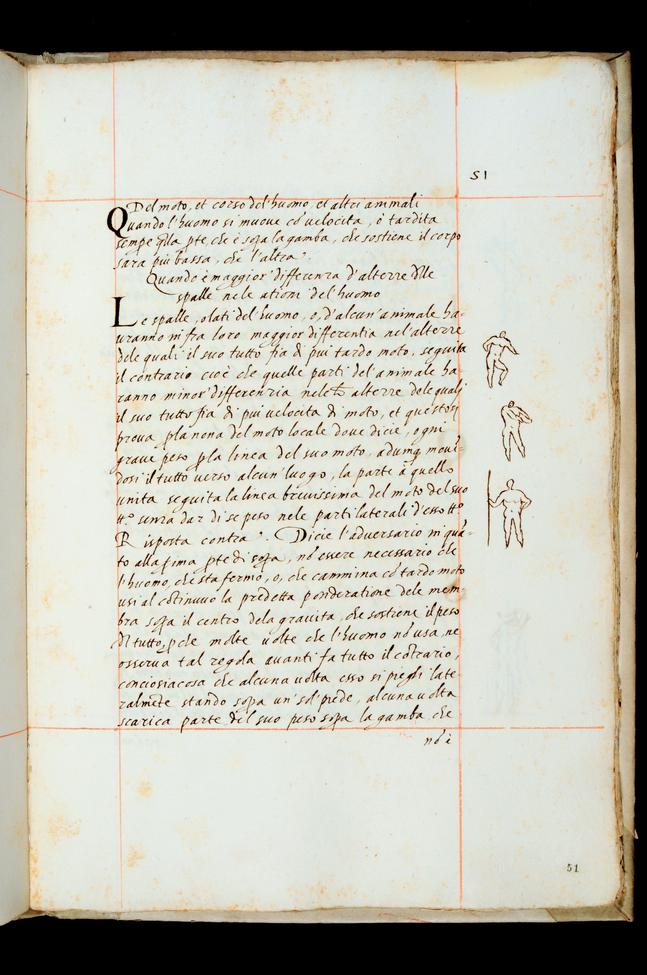 51
Del moto, et corso del'huomo, et altri animali
Quando l'huomo si muove cõ velocita, ò tardita
sempe q̃lla pte, che è sopa la gamba, che sostiene il corpo
sara piu bassa, che l'altra.
Quando è maggior' differenza d'alterre dlle
spalle nele ationi del huomo
Le spalle, olati del huomo, o, d'alcun'animale ha-
uranno infra loro maggior differentia nel'alterre
dele quali il suo tutto fia di piu tardo moto, seguita
il contrario cioè che quelle parti del'animale ha-
ranno minor'differenzia nele alterre dele quali
il suo tutto fia di piu velocita di moto, et questo si
prova p la nona del moto locale dove dicie, ogni
grave peso p la linea del suo moto, adunq movē-
dosi il tutto verso alcun'luogo, la parte à quello
unita seguita la linea brevissima del moto del suo
tto senza dar di se peso nele parti laterali d'esso tto
Risposta contra. Dicie l'adversario in quā-
to alla pima pte di sopa, nõ essere necessario che
l'huomo, che sta fermo, o, che cammina cõ tardo moto
usi al cõtinuvo la predetta ponderatione dele mem-
bra sopa il centro dela gravita, che sostiene il peso
dl tutto, pche molte volte che l'huomo nõ usa, ne
osserva tal regola avanti fa tutto il cõtrario,
conciosiacosa che alcuna volta esso si pieghi late-
ralmēte stando sopa un'sol piede, alcuna volta
scarica parte del suo peso sopa la gamba che
nõ è
51